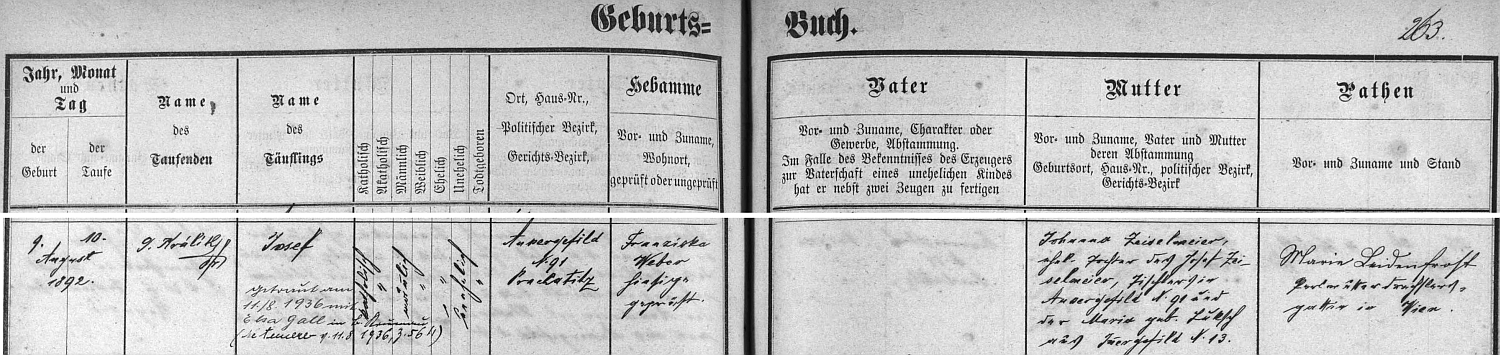 Geburts=
Buch.
263.
Jahr, Monat
und
Tag
der
Geburt
der
Taufe
Name
des
Taufenden
Name
des
Täuflings
Katholisch
Akatholisch
Männlich
Weiblich
Ehelich
Unehelich
Todtgeboren
Ort, Haus=Nr.,
Politischer Bezirk,
Gerichts=Bezirk,
Hebamme
Vor= und Zuname,
Wohnort,
geprüft oder ungeprüft
Vater
Vor= und Zuname, Charakter oder
Gewerbe, Abstammung.
Im Falle des Bekenntnisses des Erzeugers
zur Vaterschaft eines unehelichen Kindes
hat er nebst zwei Zeugen zu fertigen
Mutter
Vor= und Zuname, Vater und Mutter
deren Abstammung
Geburtsort, Haus=Nr., politischer Bezirk,
Gerichts=Bezirk
Pathen
Vor= und Zuname und Stand
9.
10.
August
1892.
J. Králik
Josef
getraut am
11./8. 1936 mit
Elsa Gall in
katholisch
"
männlich
"
"
unehelich
"
Auvergefild
N. 91
Prachatitz
Franziska
Weber
hiesige
geprüft.
Johanna Zeiselmeier,
ehel. Tochter des Josef Zei-
selmeier, Tischlers in
Auvergefild N. 91 und
der Maria geb. Luksch
aus N. 13.
Marie Leidenfrost
Perlmutterdrechslers-
gattin in Wien.